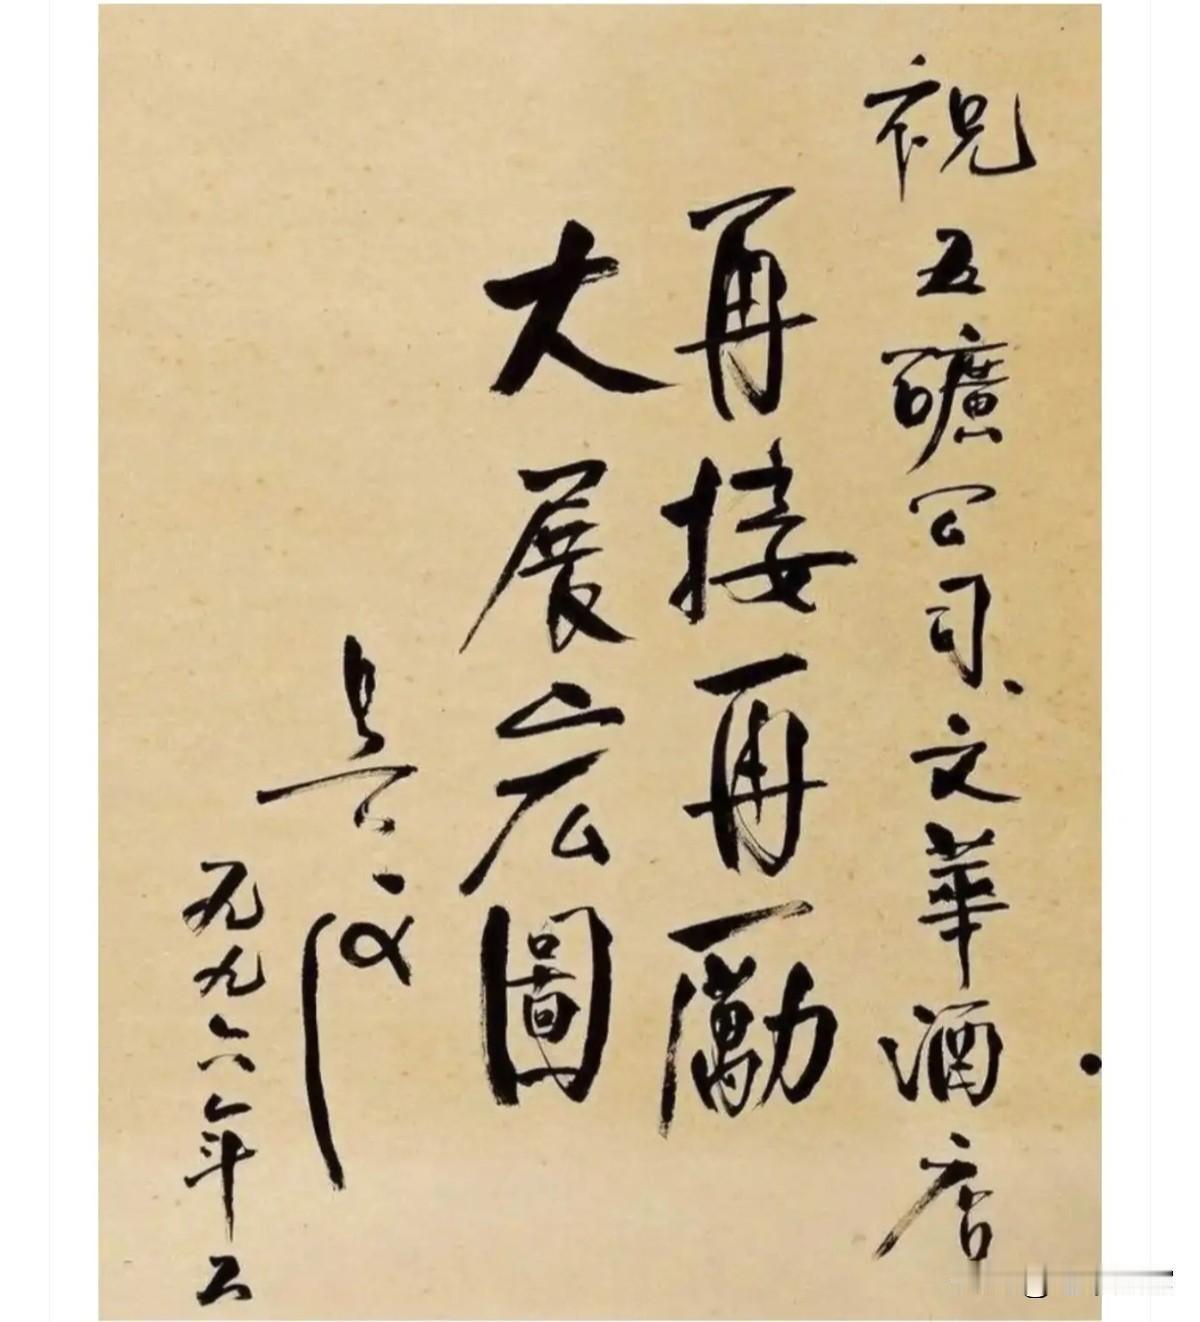 祝五礦公司、文華酒店
再接再勵
大展宏圖
吴仪
一九九六年